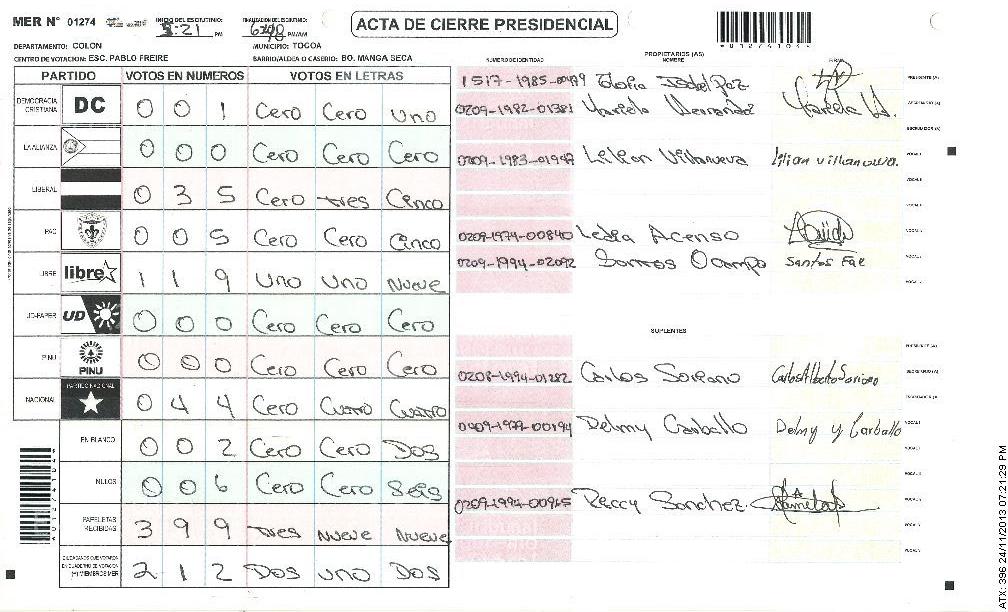 MER Nº 01274 INICIO DEL ESCRUTINIO: 5:21 PM FINALIZACION DEL ESCRUTINIO: PM/AM
ACTA DE CIERRE PRESIDENCIAL
DEPARTAMENTO: COLON MUNICIPIO: TOCOA
CENTRO DE VOTACION: ESC. PABLO FREIRE BARRIO/ALDEA O CASERIO: BO. MANGA SECA
PROPIETARIOS (AS)
NUMERO DE IDENTIDAD NOMBRE FIRMA
PARTIDO VOTOS EN NUMEROS VOTOS EN LETRAS
DEMOCRACIA CRISTIANA DC 0 0 1 Cero Cero Uno
LA ALIANZA 0 0 0 Cero Cero Cero
LIBERAL 0 3 5 Cero tres Cinco
PAC 0 0 5 Cero Cero Cinco
LIBRE libre 1 1 9 Uno Uno Nueve
UD-FAPER UD 0 0 0 Cero Cero Cero
PINU PINU 0 0 0 Cero Cero Cero
NACIONAL PARTIDO NACIONAL 0 4 4 Cero Cuatro Cuatro
EN BLANCO 0 0 2 Cero Cero Dos
NULOS 0 0 6 Cero Cero Seis
PAPELETAS RECIBIDAS 3 9 9 Tres Nueve Nueve
CIUDADANOS QUE VOTARON EN CUADERNO DE VOTACION (+) MIEMBROS MER 2 1 2 Dos uno Dos
Isabel Paz PRESIDENTE (A)
0209-1982-01381 SECRETARIO (A)
ESCRUTADOR (A)
0209-1983-01947 Lilian Villanueva Lilian villanueva. VOCAL I
0209-1974-00840 Ledia Acenso
0209-1994-02092 Santos Ocampo Santos
SUPLENTES
PRESIDENTE (A)
0208-1994-01282 Carlos Soriano Carlos Alberto Soriano SECRETARIO (A)
ESCRUTADOR (A)
Delmy Carballo Delmy y Carballo VOCAL I
Sanchez
ATX: 396 24/11/2013 07:21:29 PM